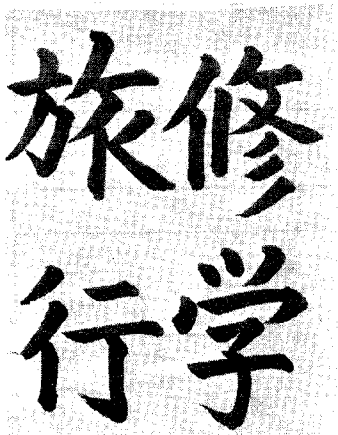 修学
旅行